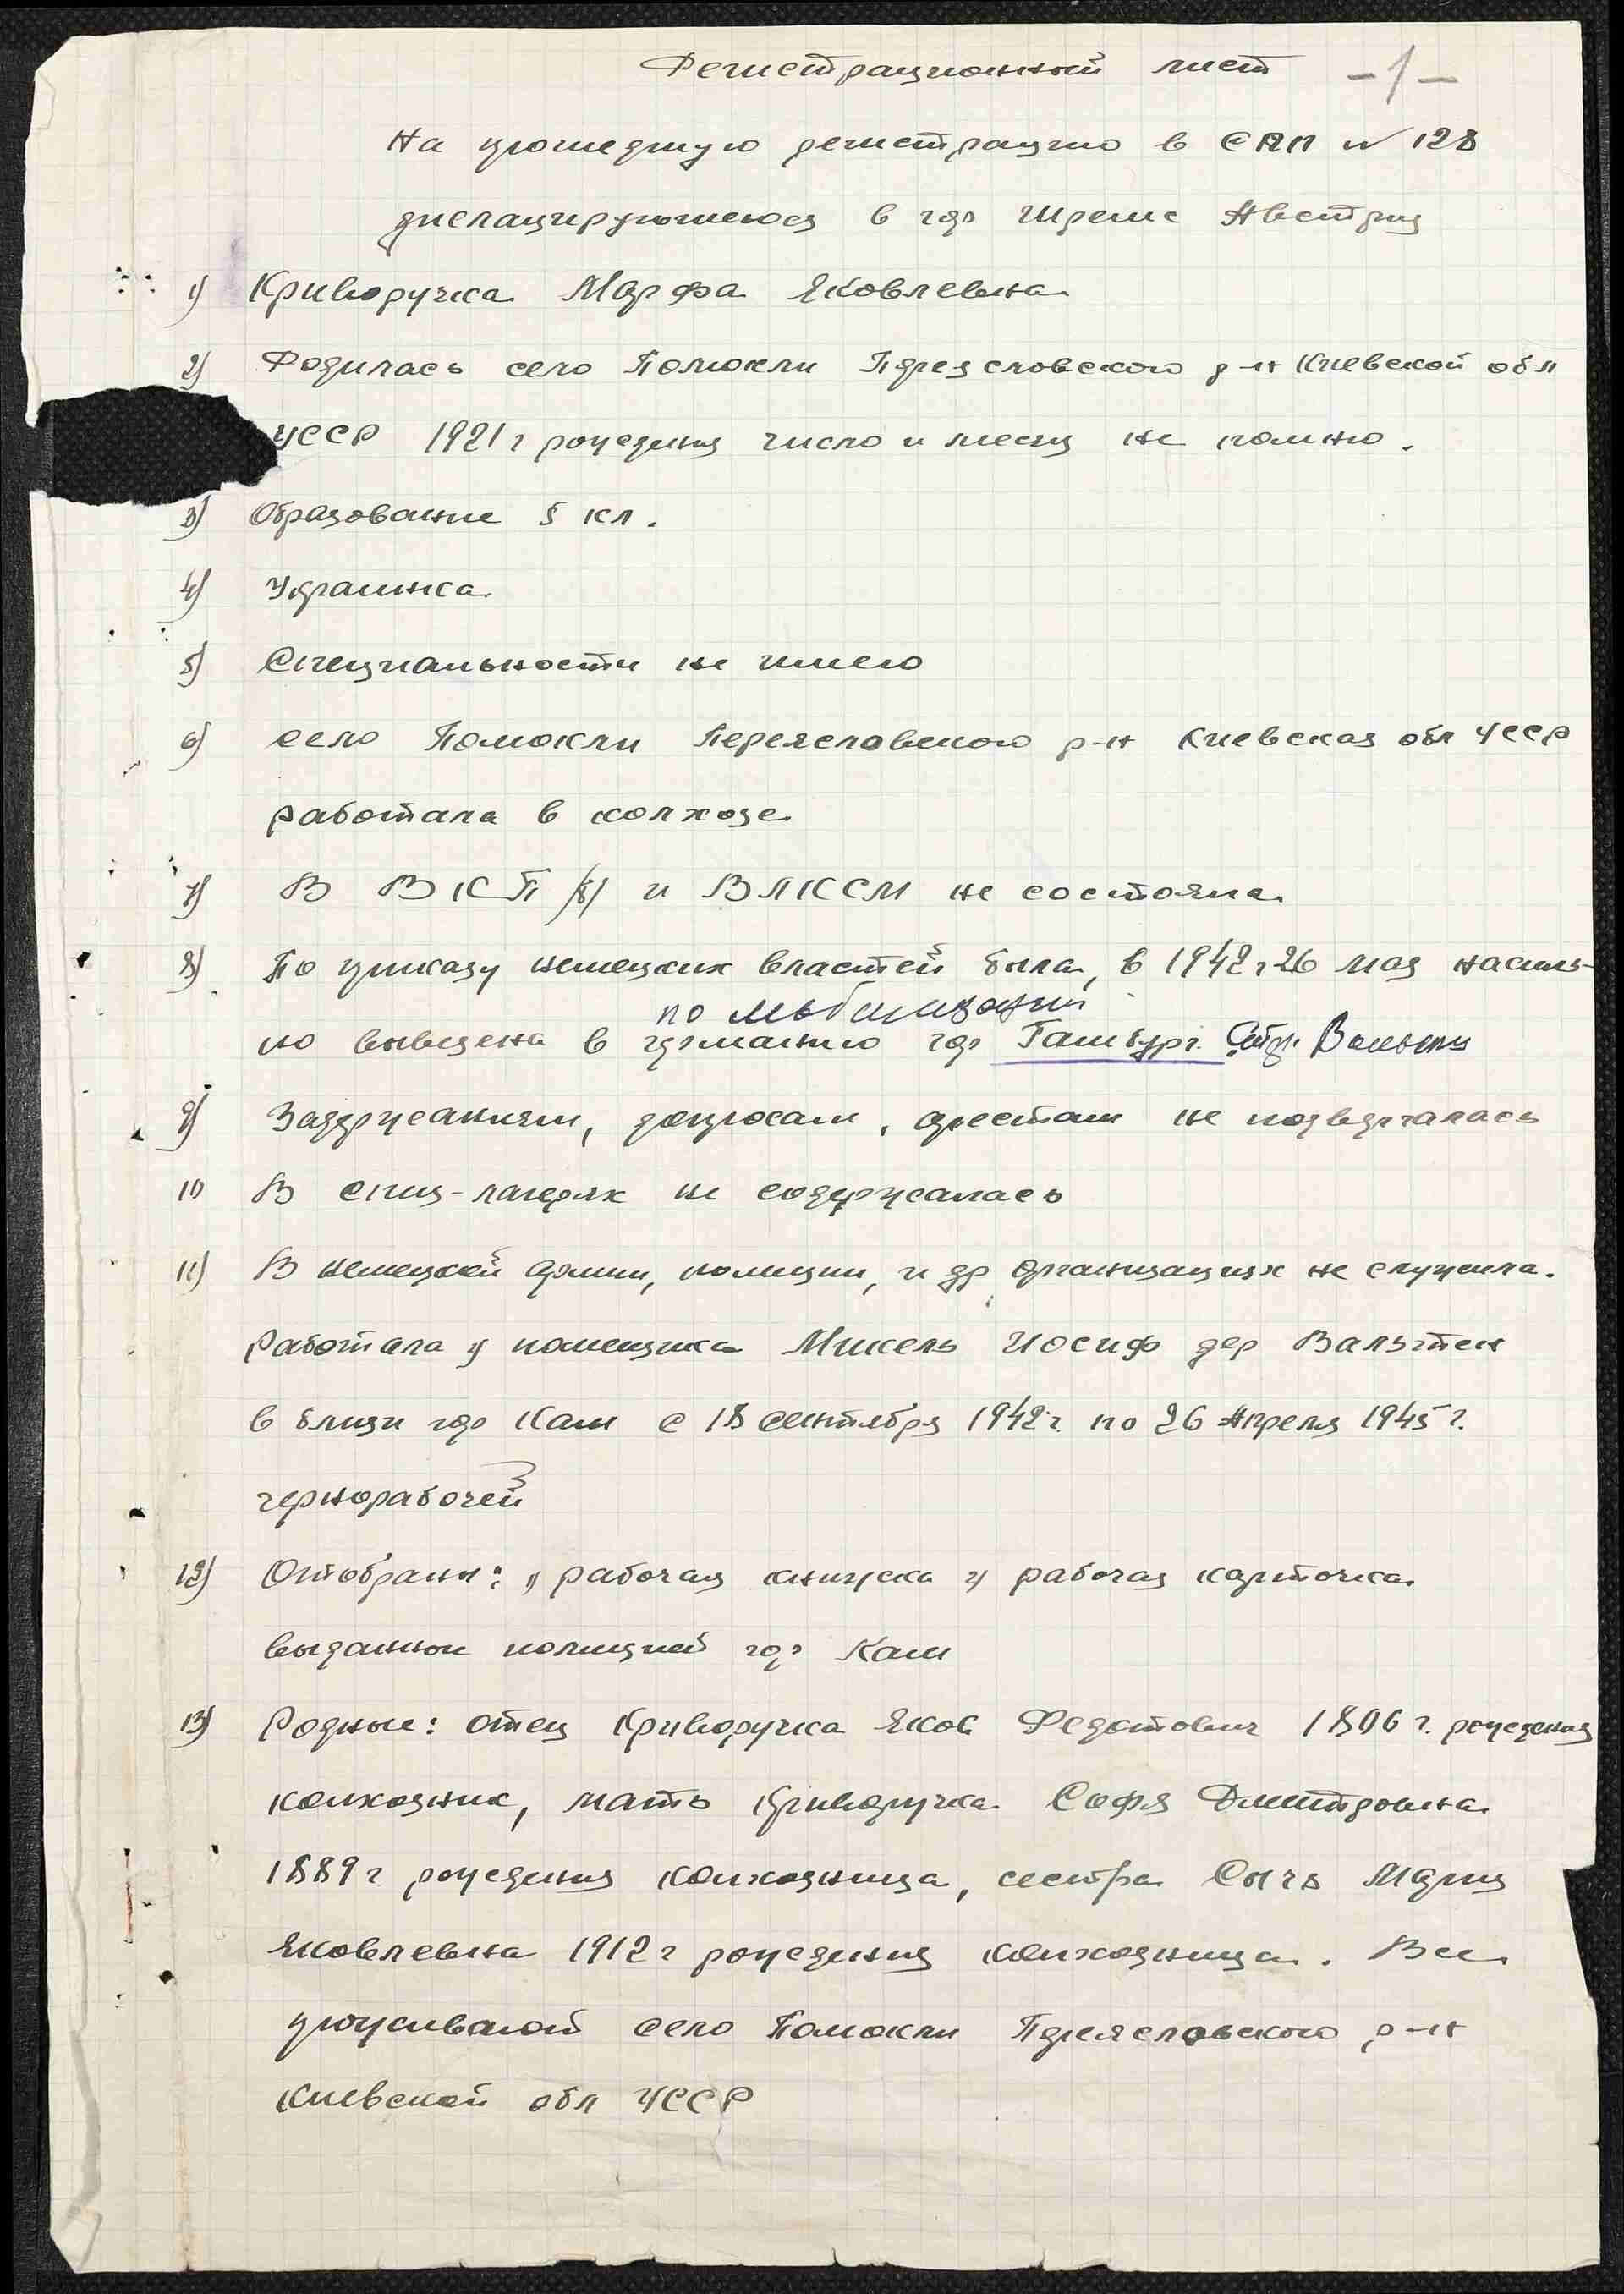 Регистрационный лист -1-
На прошедшую регистрацию в СПП № 128
дислацирующеюся в гор Шремс Австрия
1) Криворучка Марфа Яковлевна
2) Родилась село Помокли Переясловского р-н Киевской обл
УССР 1921 г рождения число и месяц не помню.
3) Образование 5 кл.
4) Украинка
5) Специальности не имею
6) село Помокли Переяславского р-н Киевская обл УССР
работала в колхозе
7) В ВКП/б/ и ВЛКСМ не состояла
8) По приказу немецких властей была, в 1942 г 26 мая насиль-
по мобилизации
но вывезена в германию гор Гамбург.
9) Задержаниям, допросам, арестам не подвергалась
10 В спец-лагерях не содержалась
11) В немецкой армии, полиции, и др организациях не служила.
Работала у помещика Микель Иосиф дер Вальтен
в близи гор Кам с 18 сентября 1942 г. по 26 Апреля 1945 г.
чернорабочей
12) Отобраны: 1) рабочая книжка 2) рабочая карточка
выданные полицией гор Кам
13) Родные: отец Криворучка Яков Федотович 1886 г. рождения
колхозник, мать Криворучка Софя Дмитровна
1889 г рождения колхозница, сестра Сыч Мария
Яковлевна 1912 г рождения колхозница. Все
проживают село Помокли Переяславского р-н
Киевской обл УССР